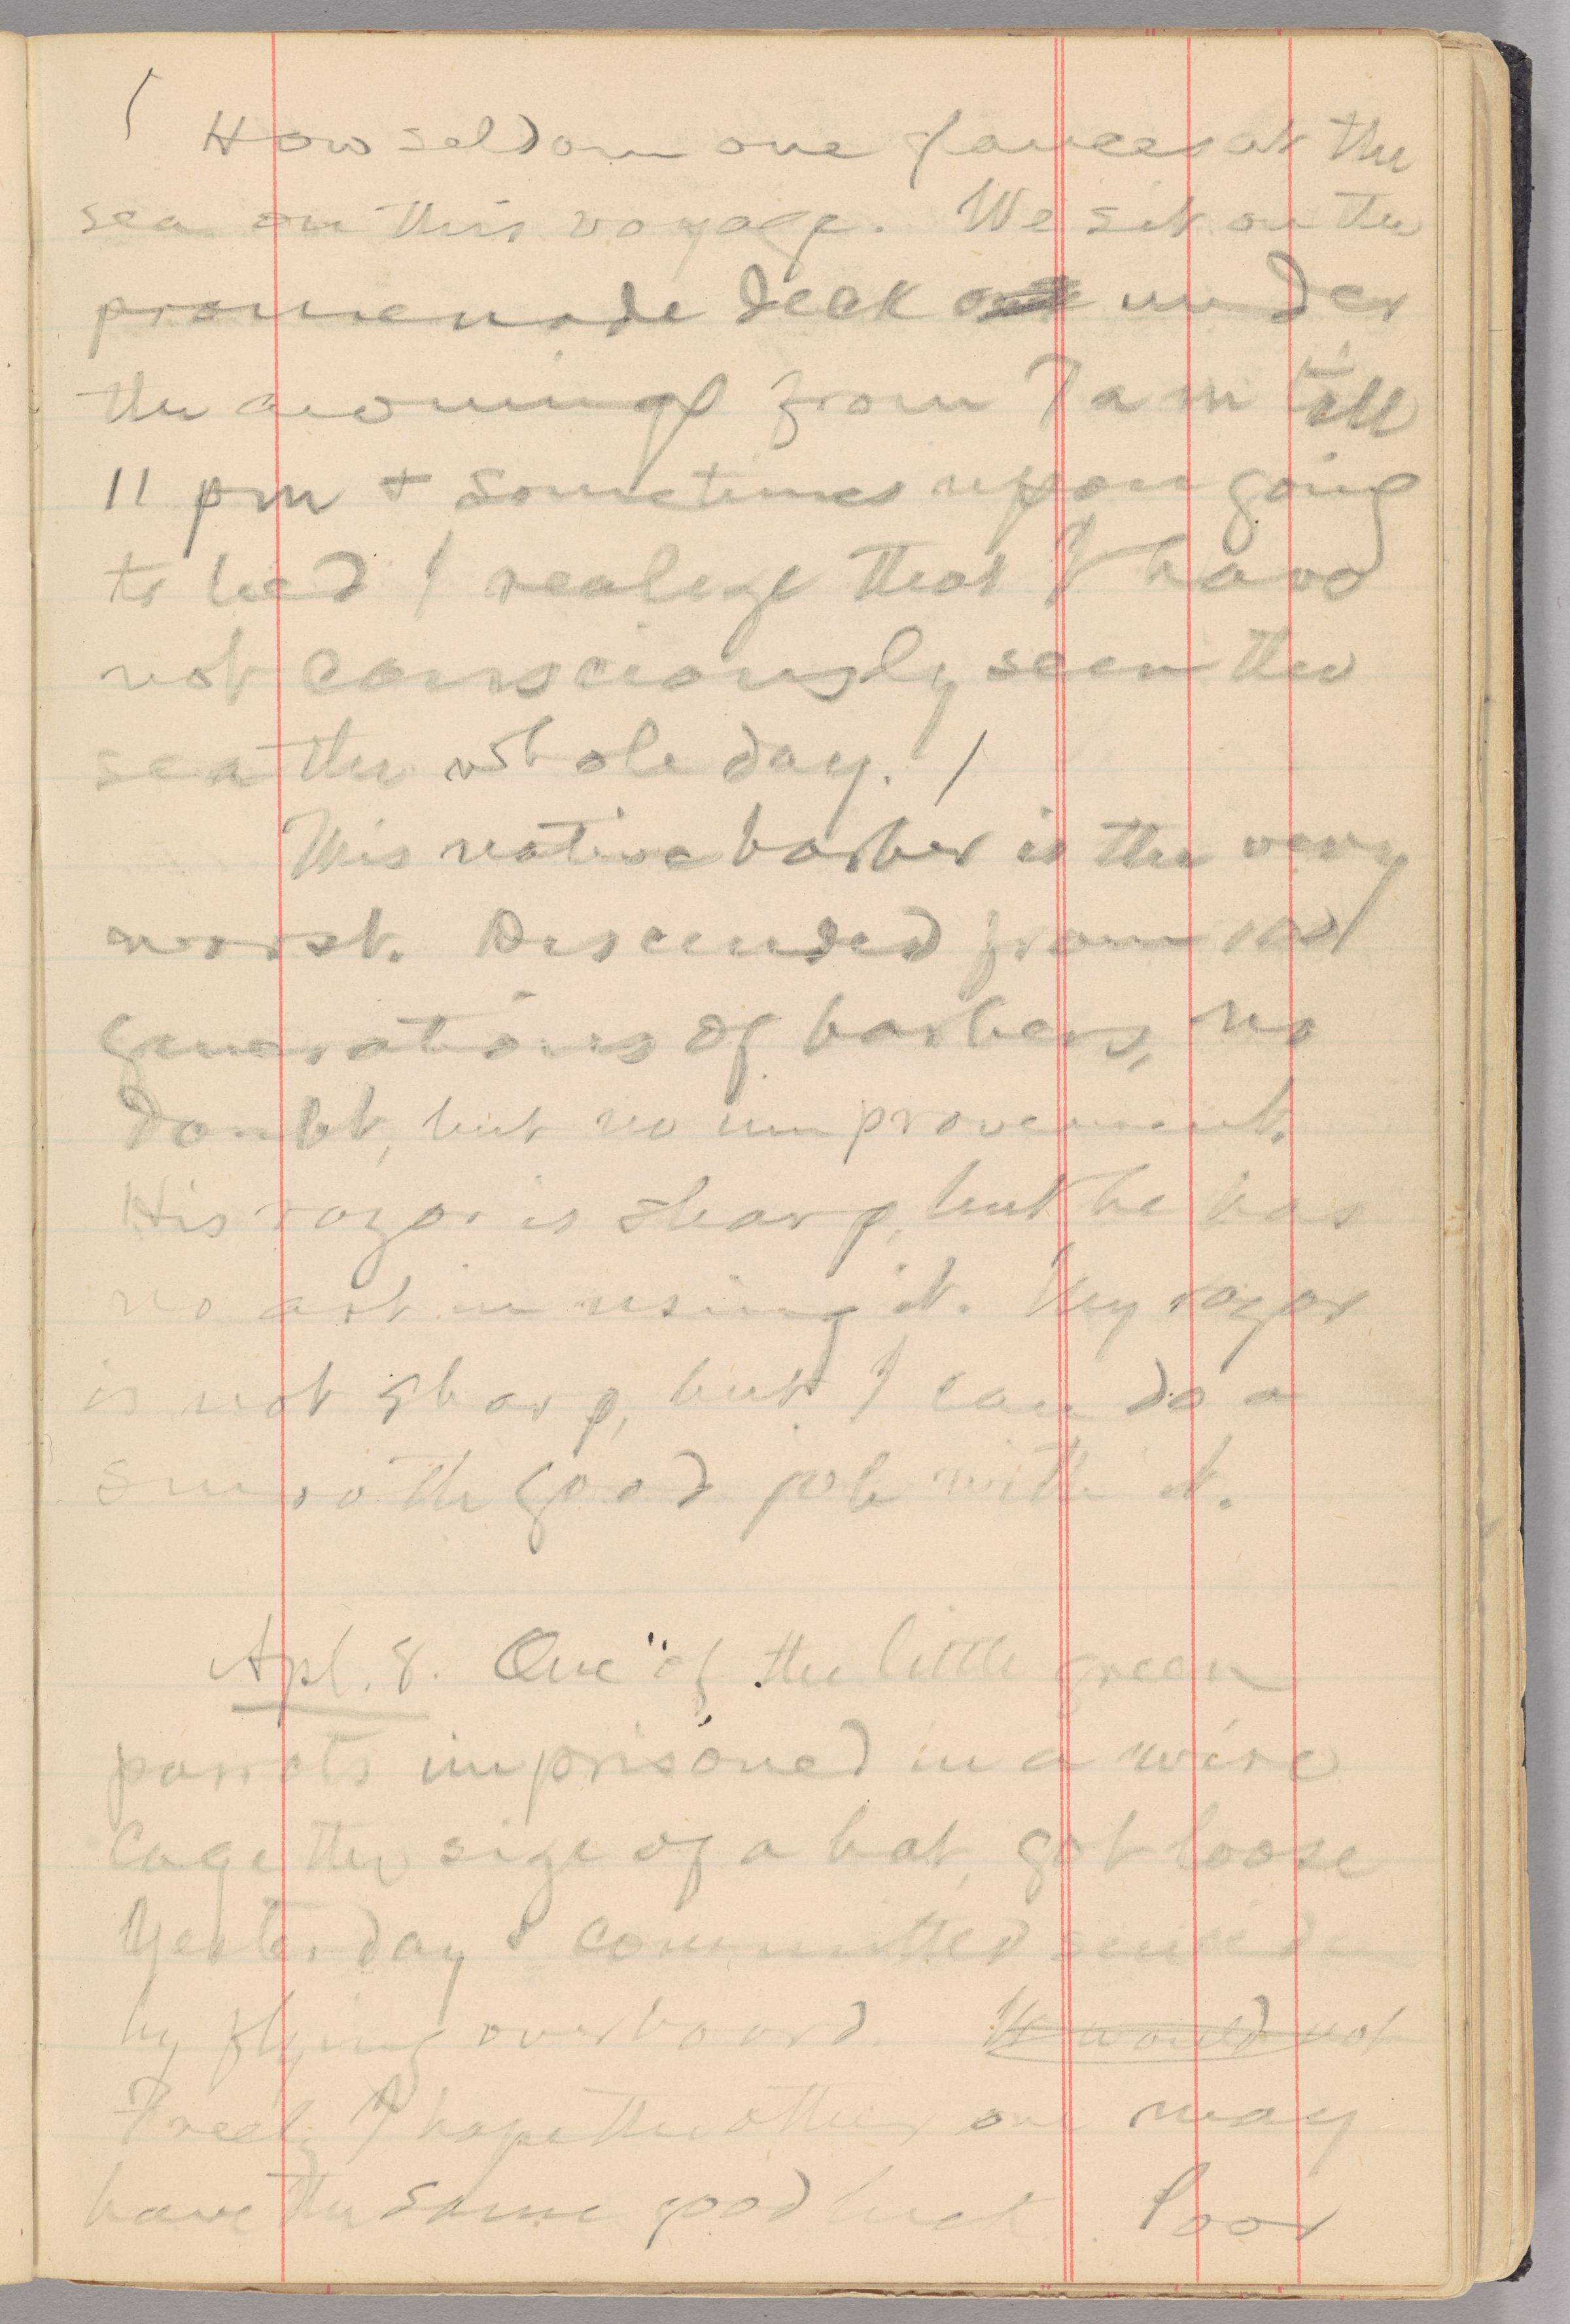 How seldom one glances at the
sea on this voyage. We sit on the
promenade deck under
the awnings from 7 a m till
11 pm + sometimes upon going
to bed I realize that I have
not consciously seen the
sea the whole day. /
This native barber is the very
worst. Descended from 100
generations of barbers, no
doubt, but no improvement.
His razor is sharp, but he has
no art in using it. My razor
is not sharp, but I can do a
smooth good job with it.
Apl. 8. One of the little green
parrots imprisoned in a wire
cage the size of a hat, got loose
yesterday & committed suicide
by flying overboard. It would not
I hope the other one may
have the same good luck. Poor